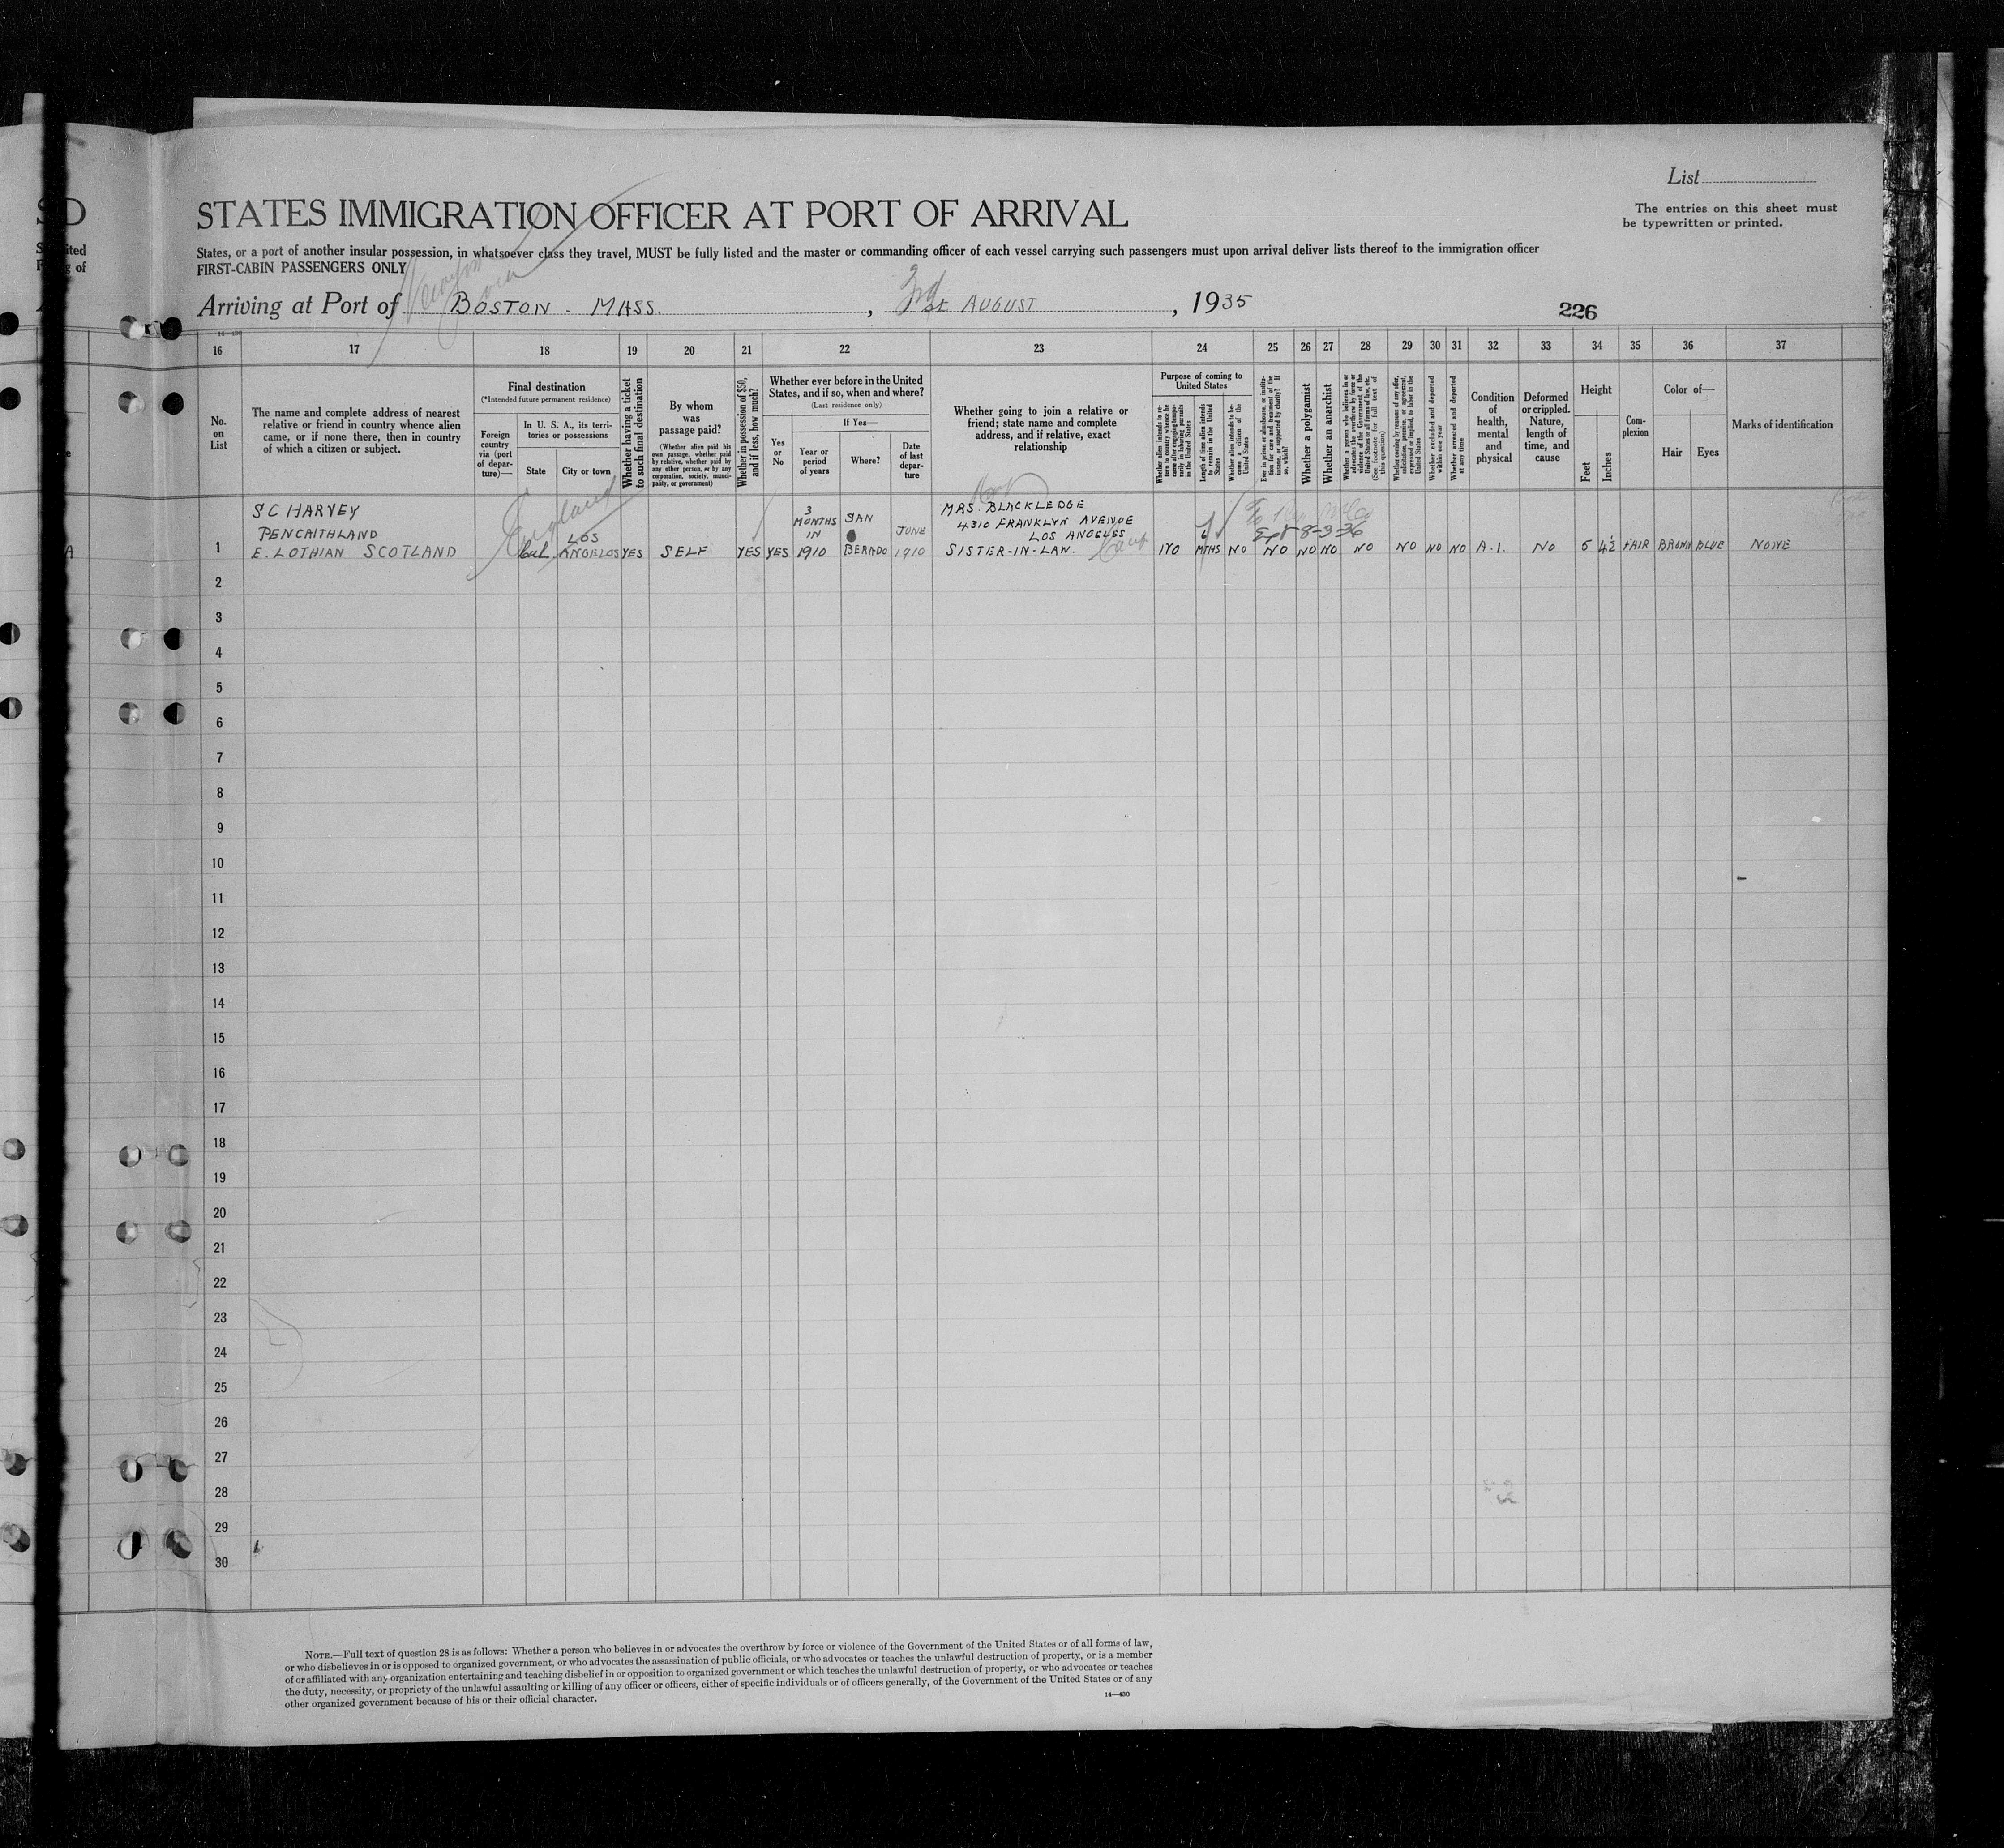 List
The entries on this sheet must
be typewritten or printed.
STATES IMMIGRATION OFFICER AT PORT OF ARRIVAL
States, or a port of another insular possession, in whatsoever class they travel, MUST be fully listed and the master or commanding officer of each vessel carrying such passengers must upon arrival deliver lists thereof to the immigration officer
FIRST-CABIN PASSENGERS ONLY
Arriving at Port of BOSTON - MASS. , 3rd AUGUST , 1935
226
14—430
16 17 18 19 20 21 22 23 24 25 26 27 28 29 30 31 32 33 34 35 36 37
No.
on
List
The name and complete address of nearest
relative or friend in country whence alien
came, or if none there, then in country
of which a citizen or subject.
Final destination
(*Intended future permanent residence)
Foreign
country
via (port
of depar-
ture)—
In U. S. A., its terri-
tories or possessions
State
City or town
Whether having a ticket
to such final destination
By whom
was
passage paid?
(Whether alien paid his
own passage, whether paid
by relative, whether paid by
any other person, or by any
corporation, society, munici-
pality, or government)
Whether in possession of $50,
and if less, how much?
Whether ever before in the United
States, and if so, when and where?
(Last residence only)
Yes
or
No
If Yes—
Year or
period
of years
Where?
Date
of last
depar-
ture
Whether going to join a relative or
friend; state name and complete
address, and if relative, exact
relationship
Purpose of coming to
United States
Whether alien intends to re-
turn to country whence he
came after engaging tempo-
rarily in laboring pursuits
in the United States
Length of time alien intends
to remain in the United
States
Whether alien intends to be-
come a citizen of the
United States
Ever in prison or almshouse, or institu-
tion for care and treatment of the
insane, or supported by charity? If
so, which?
Whether a polygamist
Whether an anarchist
Whether a person who believes in or
advocates the overthrow by force or
violence of the Government of the
United States or all forms of law, etc.
(See footnote for full text of
this question)
Whether coming by reason of any offer,
solicitation, promise, or agreement,
expressed or implied, to labor in the
United States
Whether excluded and deported
within one year
Whether arrested and deported
at any time
Condition
of
health,
mental
and
physical
Deformed
or crippled.
Nature,
length of
time, and
cause
Height
Feet
Inches
Com-
plexion
Color of—
Hair
Eyes
Marks of identification
England
S C HARVEY
PENCAITHLAND
E. LOTHIAN SCOTLAND
1
Cal
LOS
ANGELOS
YES
SELF
YES
YES
3
MONTHS
IN
1910
SAN
BERNDO
JUNE
1910
MRS. BLACKLEDGE
4310 FRANKLYN AVENUE
LOS ANGELES
SISTER-IN-LAW.
NO
6
MTHS
NO
8-3-36
NO NO NO NO NO NO NO A.1. NO 5 4½ FAIR BROWN BLUE NONE
2
3
4
5
6
7
8
9
10
11
12
13
14
15
16
17
18
19
20
21
22
23
24
25
26
27
28
29
30
NOTE.—Full text of question 28 is as follows: Whether a person who believes in or advocates the overthrow by force or violence of the Government of the United States or of all forms of law,
or who disbelieves in or is opposed to organized government, or who advocates the assassination of public officials, or who advocates or teaches the unlawful destruction of property, or is a member
of or affiliated with any organization entertaining and teaching disbelief in or opposition to organized government or which teaches the unlawful destruction of property, or who advocates or teaches
the duty, necessity, or propriety of the unlawful assaulting or killing of any officer or officers, either of specific individuals or of officers generally, of the Government of the United States or of any
other organized government because of his or their official character.
14—430